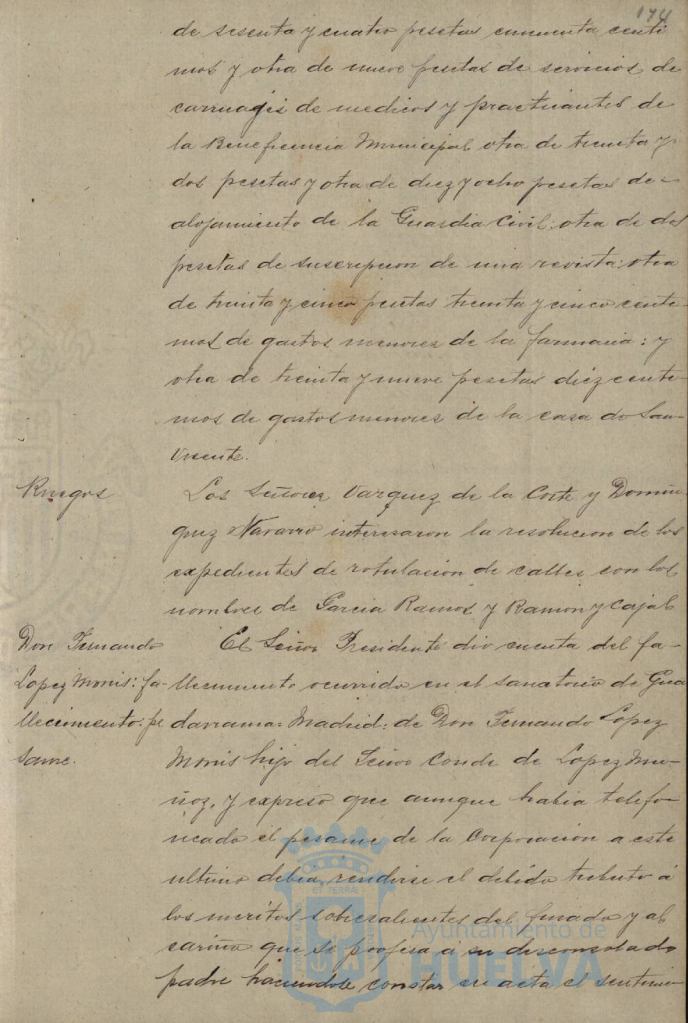 174
de sesenta y cuatro pesetas cincuenta centi
mos y otra de nueve pesetas de servicios de
carruages de medicos y practicantes de
la Beneficencia Municipal otra de treinta y
dos pesetas y otra de diez y ocho pesetas de
alojamiento de la Guardia Civil: otra de dos
pesetas de suscripcion de una revista: otra
de treinta y cinco pesetas treinta y cinco centi-
mos de gastos menores de la farmacia: y
otra de treinta y nueve pesetas diez centi-
mos de gastos menores de la casa de San
Vicente.
Ruegos
Los Señores Vazquez de la Corte y Domin
guez Navarro interesaron la resolucion de los
expedientes de rotulacion de calles con los
nombres de Garcia Ramos y Ramon y Cajal
Don Fernando
Lopez Monis: fa-
llecimiento: pe
same.
El Señor Presidente dio cuenta del fa-
llecimiento ocurrido en el sanatorio de Gua
darrama: Madrid: de Don Fernando Lopez
Monis hijo del Señor Conde de Lopez Mu-
ñoz, y expreso que aunque habia telefo-
neado el pesame de la Corporacion a este
ultimo debia rendirse el debido tributo á
los meritos sobresalientes del finado y al
cariño que se profesa á su desconsolado
padre haciendole constar en acta el sentimi
Ayuntamiento de
HUELVA